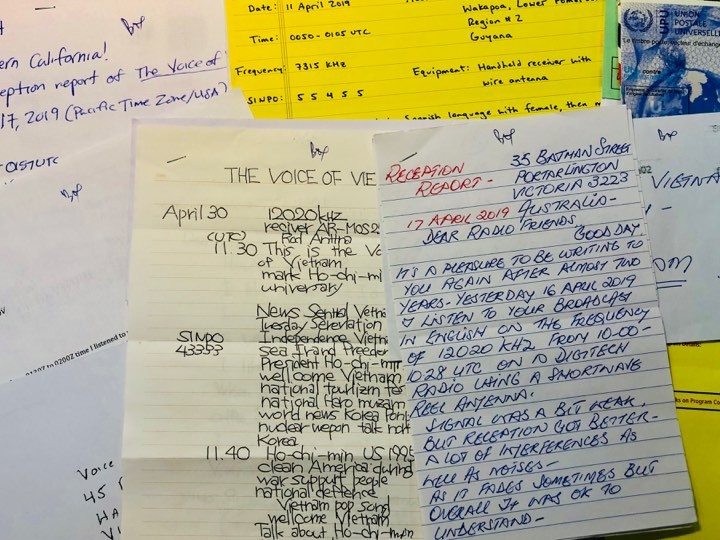 ern California!
eption report of The Voice of
17, 2019 (Pacific Time Zone/USA)
0157UTC
Date: 11 April 2019
Time: 0050-0105 UTC
Frequency: 7315 KHz
SINPO: 5 5 4 5 5
Wakapoa, Lower
Region #2
Guyana
Equipment: Handheld receiver with
wire antenna
Spanish language with female, then
UPU
UNION
POSTALE
UNIVERSELLE
THE VOICE OF VIE
April 30 12020 kHz
reciver AR-MOS2
(UTC)
11.30 This is the Vo
of Vietnam
mark Ho-chi-mi
universary
News Sential Vetn
Tuesday
SINPO Independence Vietn
43333 sea Irand Freedom
President Ho-chi-mi
wellcome Vietnam
national
national Hero muzam
world news Korea
nuclear wepon talk not
Korea
11.40 Ho-chi-min US 1995
clean America during
war support people
national deffence
Vietnam pop song
wellcome Vietnam
Talk about Ho-chi-min
RECEPTION
REPORT-
35 BATMAN STREET
PORTARLINGTON
VICTORIA 3223
AUSTRALIA-
17 APRIL 2019
DEAR RADIO FRIENDS
GOOD DAY
IT'S A PLEASURE TO BE WRITING TO
YOU AGAIN AFTER ALMOST TWO
YEARS- YESTERDAY 16 APRIL 2019
I LISTEN TO YOUR BROADCAST
IN ENGLISH ON THE FREQUENCY
OF 12020 KHZ FROM 10.00-
1028 UTC ON A DIGITECH
RADIO USING A SHORTWAVE
REEL ANTENNA.
SIGNAL WAS A BIT WEAK,
BUT RECEPTION GOT BETTER-
A LOT OF INTERFERENCES AS
WELL AS NOISES-
AS IT FADES SOMETIMES BUT
OVERALL IT WAS OK TO
UNDERSTAND-
VIETNA
to 0200Z time I listened to
ks on Program Co
Voice
45
HA